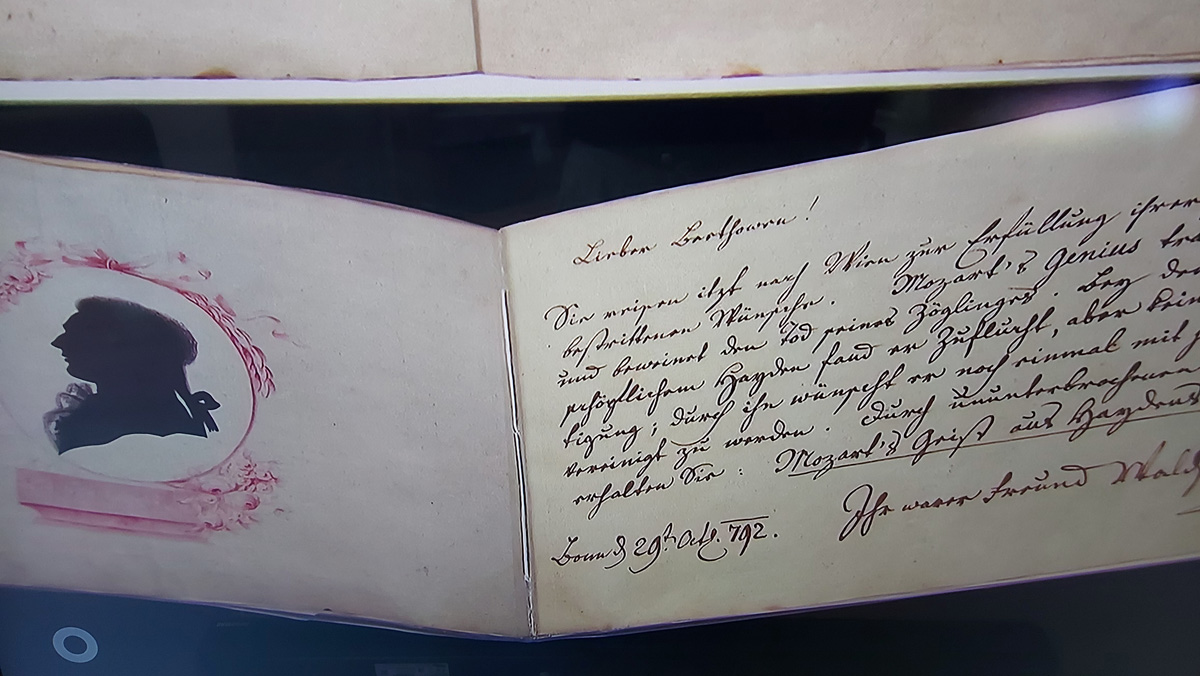 Lieber Beethowen!
Sie reisen itzt nach Wien zur Erfüllung ihrer
bestrittenen Wünsche. Mozart's Genius
und beweinet den Tod seines Zöglinges. Bey dem
schöpflichem Hayden fand er Zuflucht, aber
tigung; durch ihn wünscht er noch einmal mit
vereinigt zu werden. Durch ununterbrochenen
erhalten Sie: Mozart's Geist aus Haydens
Ihr warer Freund
Bonn d 29t. Oct. 792.